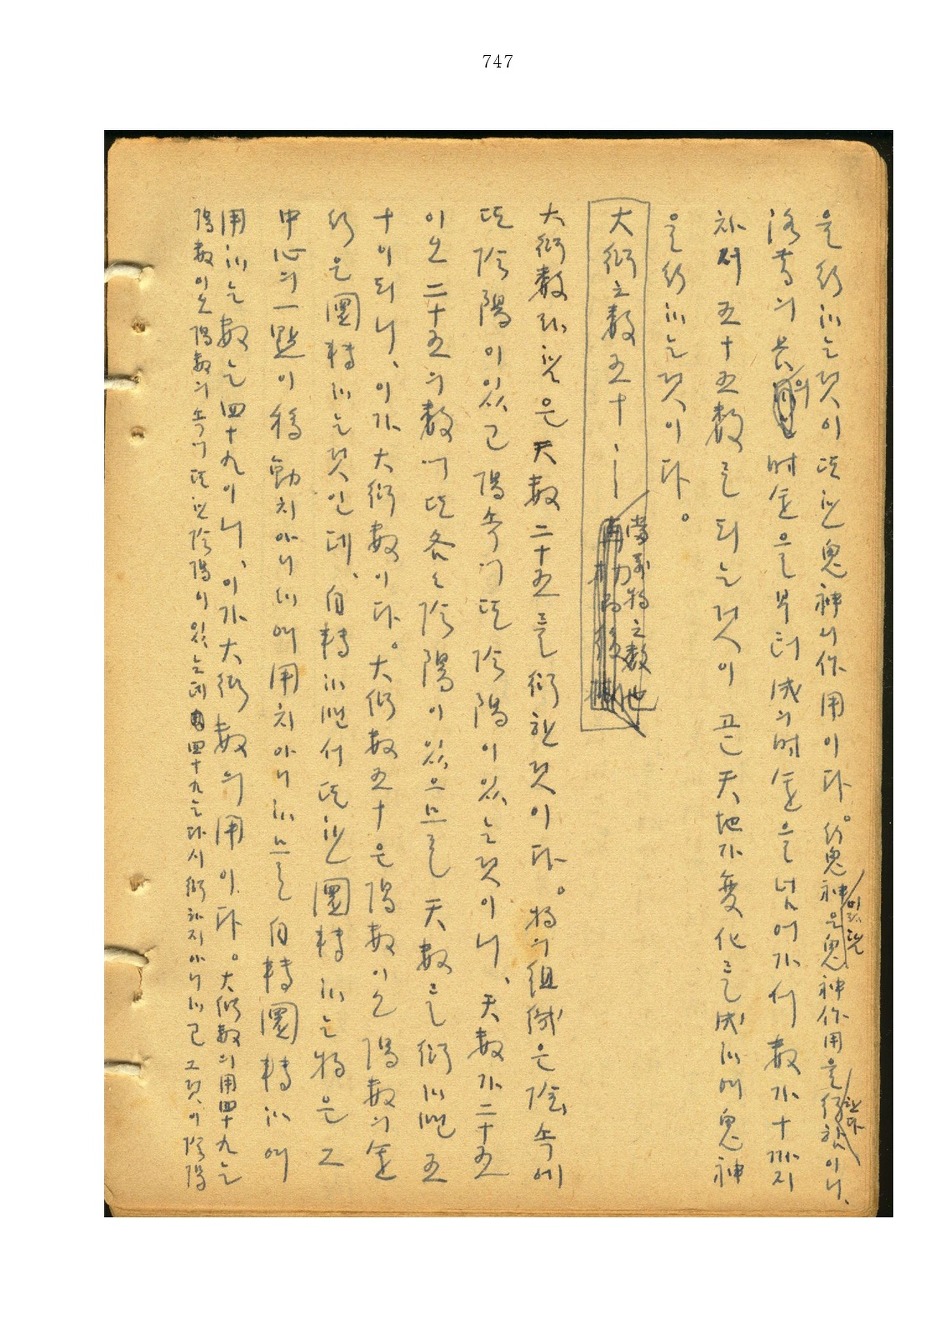 747
을 行하는것이 또한 鬼神의作用이다。 行鬼神은鬼神作用을 行한다
洛書의 長의 때金을부터 成의때金을넘어가서 數가十까지
하여 五十五數를 되는것이 곧 天地가 變化를 成하며 鬼神
을行하는것이다。
大衍之數五十
當萬物之數也
大衍數라함은 天數二十五를 衍한것이다。 物의組織은 陰속에
또 陰陽이있고 陽속에또 陰陽이있는것이니、 天數가二十五
이오 二十五의數에또各各陰陽이있으므로 天數를衍하면 五
十이되니、 이가大衍數이다。 大衍數五十은 陽數이오 陽數의金
行은圜轉하는것인데、 自轉하면서또한 圜轉하는物은 그
中心의一點이移動치아니하며用치아니하므로 自轉圜轉하며
用하는數는四十九이니、 이가大衍數의用이다。 大衍數의用四十九는
陽數이오 陽數의속에또한陰陽이있는데 四十九는다시衍하지아니하고 그것이陰陽